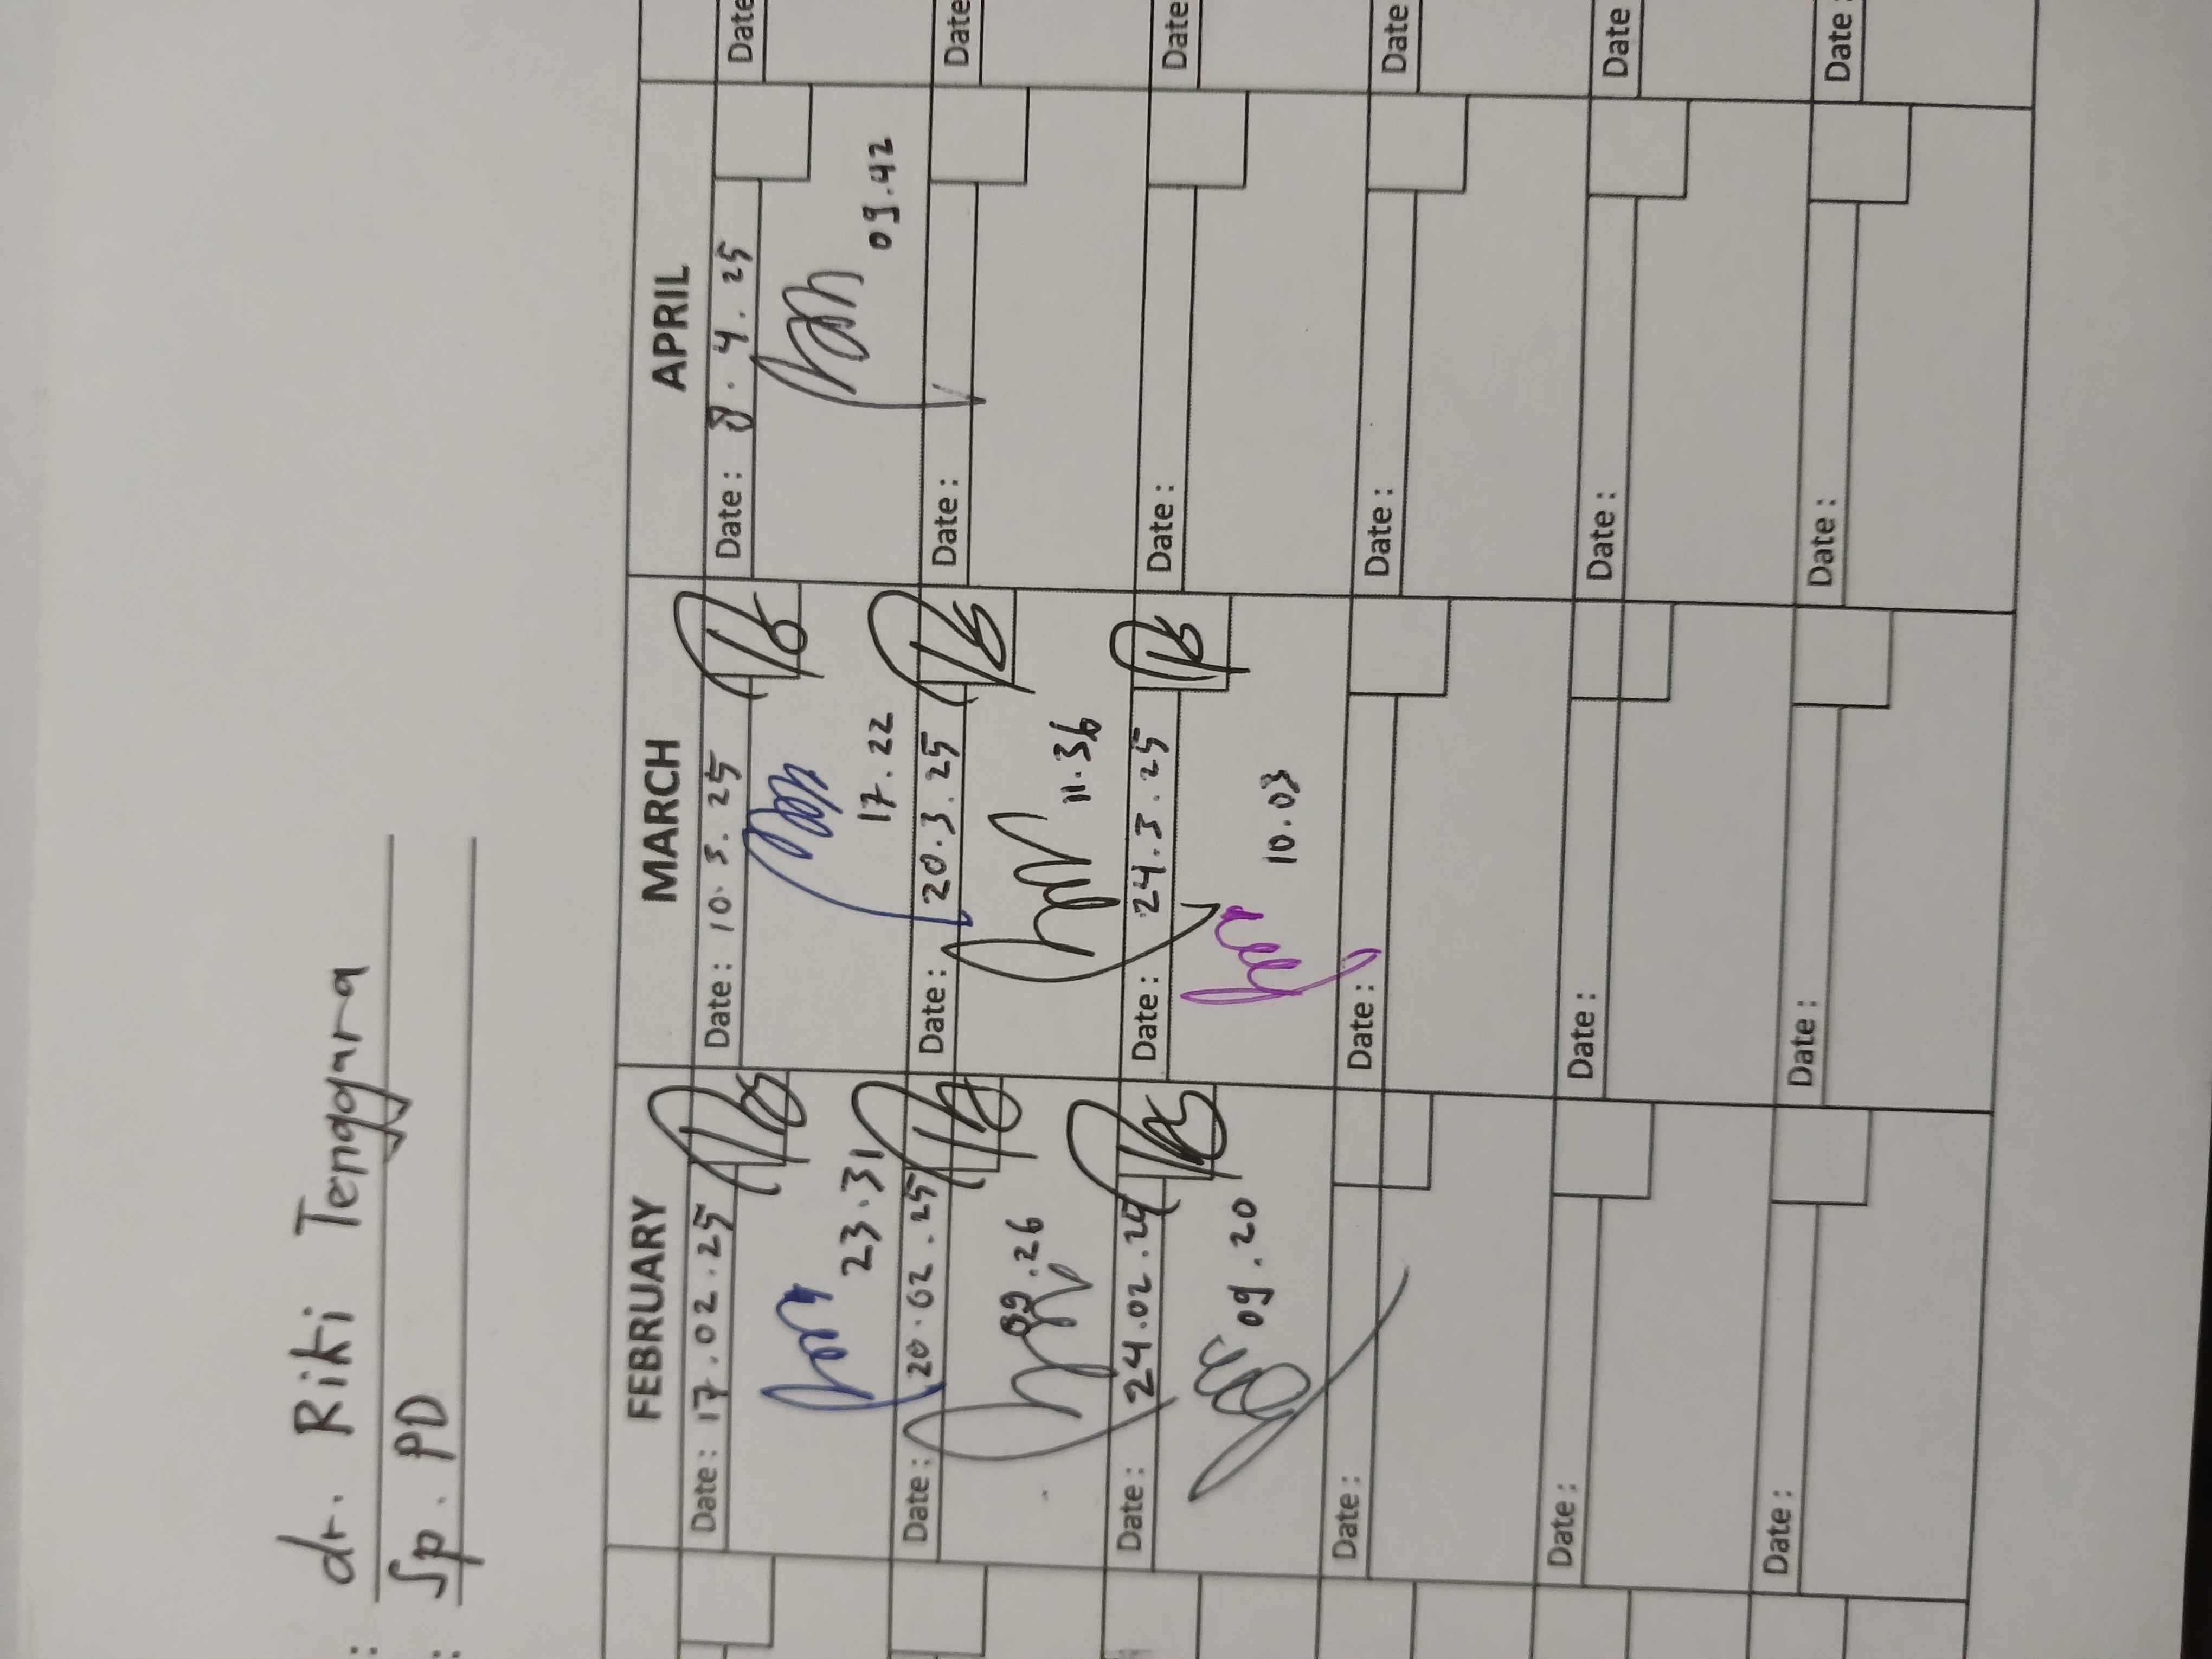 : dr. Riki Tenggara
: Sp. PD
FEBRUARY MARCH APRIL
Date : 17.02.25 Date : 10.3.25 Date : 8.4.25 Date
23.31 17.22 09.42
Date : 20.02.25 Date : 20.3.25 Date : Date
09.26 11.36
Date : 24.02.25 Date : 24.3.25 Date : Date
09.20 10.03
Date : Date : Date : Date
Date : Date : Date : Date
Date : Date : Date : Date :